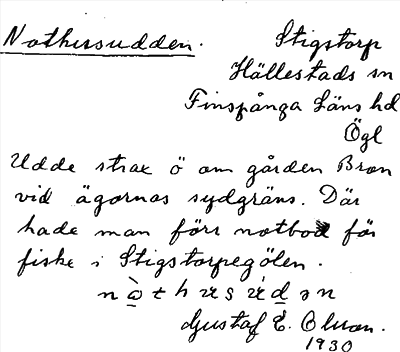 Nothusudden. Stigstorp
Hällestads sn
Finspånga läns hd
Ögl
Udde strax ö om gården Bron
vid ägornas sydgräns. Där
hade man förr notbod för
fiske i Stigstorpegölen.
Gustaf E. Olsson.
1930